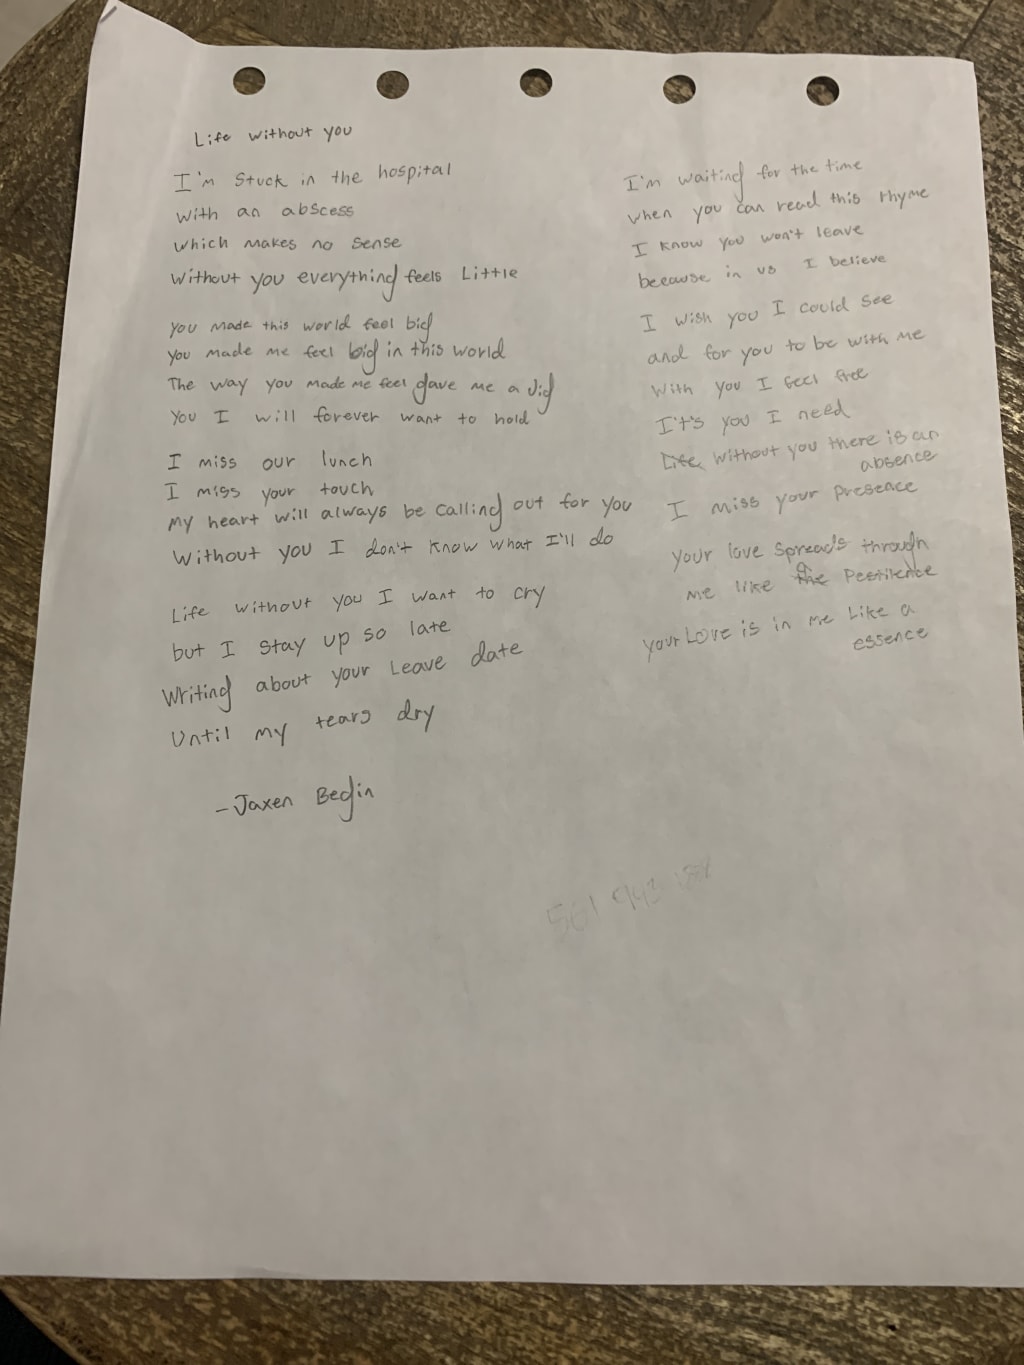 Life without you
I'm stuck in the hospital
with an abscess
which makes no sense
without you everything feels Little
you made this world feel big
you made me feel big in this world
The way you made me feel gave me a Jig
You I will forever want to hold
I miss our lunch
I miss your touch
my heart will always be calling out for you
without you I don't know what I'll do
Life without you I want to cry
but I stay up so late
writing about your Leave date
Until my tears dry
-Jaxen Begin
I'm waiting for the time
when you can read this rhyme
I know you won't leave
because in us I believe
I wish you I could see
and for you to be with me
with you I feel free
It's you I need
Life without you there is an
absence
I miss your presence
your love spreads through
me like a the Pestilence
your Love is in me Like a
essence
561 943